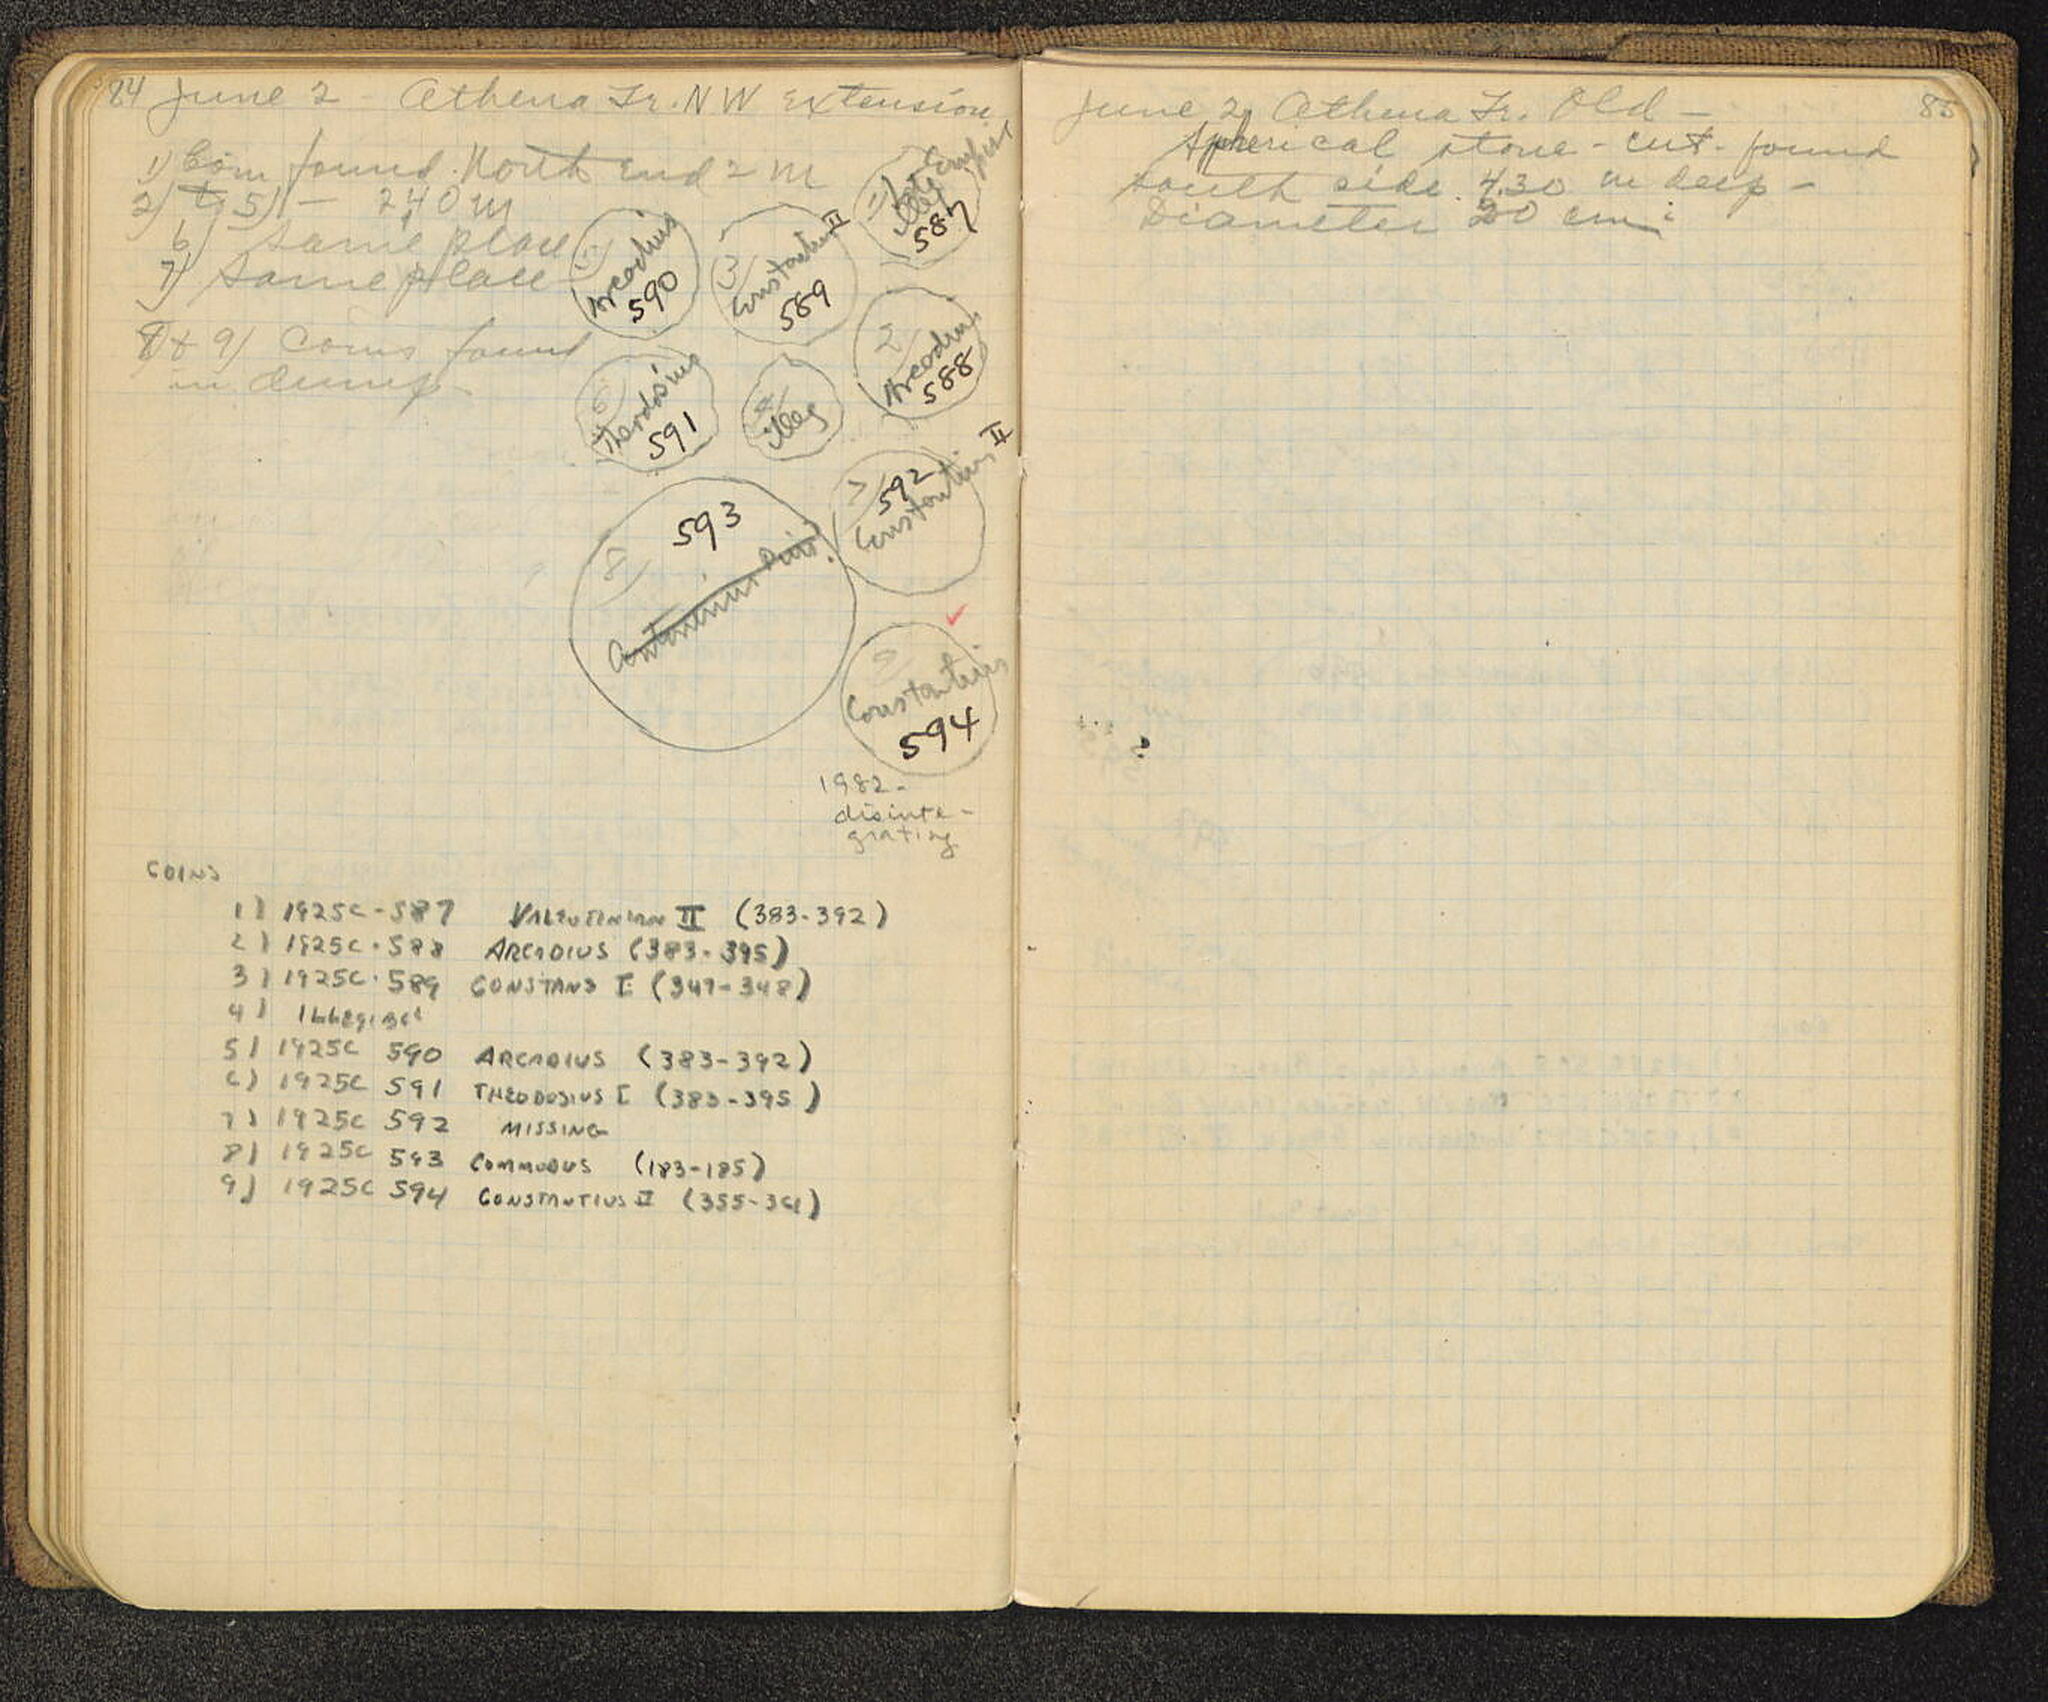 84 June 2 - Athena Tr. N W Extension
1) Coin found. North end 2 m
2) to 5) - 2.40 m
6) same place
7) same place
8 + 9) Coins found
in dump
1) late Empire
illeg
587
5) Arcadius
590
3) Constantius II
589
2) Arcadius
588
6) Theodosius
591
4) illeg
7) 592
Constantius II
593
8) Antoninus Pius.
9)
Constantius
594
1982 -
disinte-
grating
COINS
1) 1925C - 587 VALENTINIAN II (383-392)
2) 1925C - 588 ARCADIUS (383-395)
3) 1925C - 589 CONSTANS I (347-348)
4) ILLEGIBLE
5) 1925C 590 ARCADIUS (383-392)
6) 1925C 591 THEODOSIUS I (383-395)
7) 1925C 592 MISSING
8) 1925C 593 COMMODUS (183-185)
9) 1925C 594 CONSTANTIUS II (355-361)
June 2 Athena Tr. Old - 85
Spherical stone - cut - found
south side 4.30 m deep -
Diameter 20 cm.